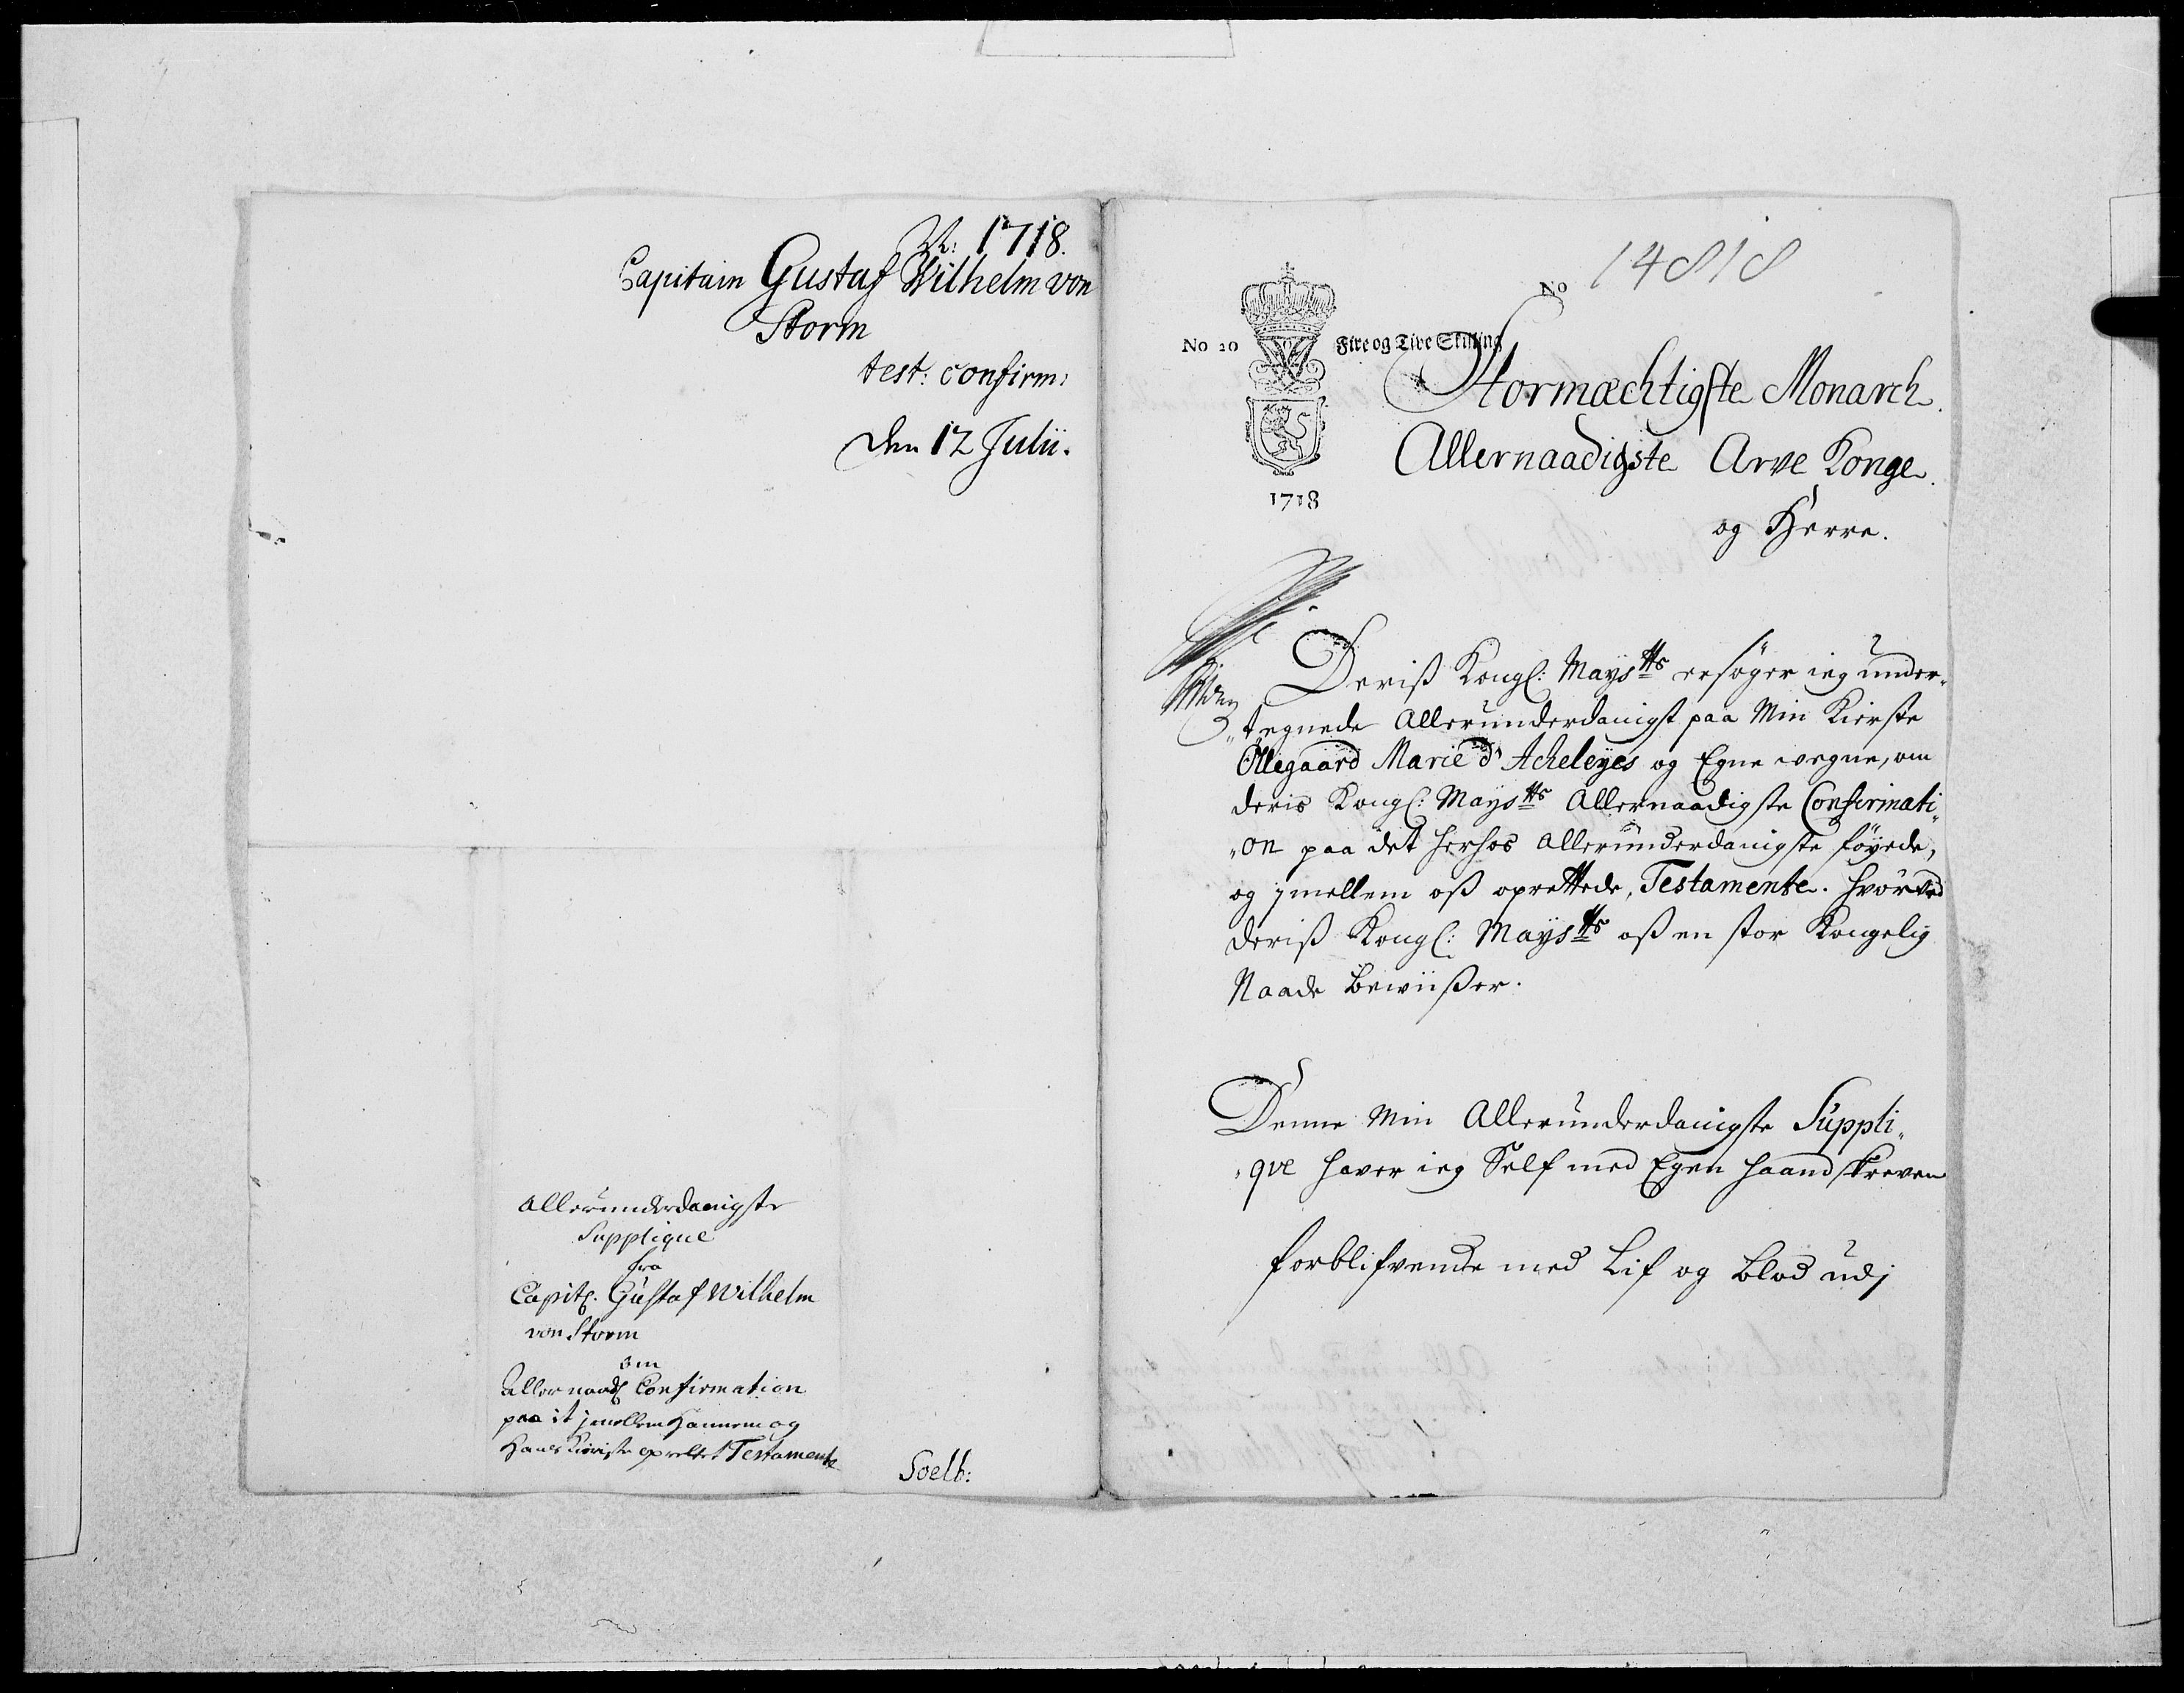 1718.
Capitain Gustaf Wilhelm von
Storm
test: confirm:
den 12 Julii.
Allerunderdanigste
Supplique
fra
Capitl. Gustaf Wilhelm
von Storm
om
allernaadl Confirmation
paa it jmellem hannem og
hans Kieriste oprettet Testamente
Soelb:
No 14818
No 20 Fire og Tive Skilling
1718
Stormæchtigste Monarch
Allernaadigste Arve Konge
og Herre.
Deriß Kongl: Maystts ersøger ieg under-
tegnede Allerunderdanigst paa Min Kierste
Ollegaard Marie d'Acheleyes og Egne vegne, om
deris Kongl: Maystts Allernaadigste Confirmati-
on paa det herhos Allerunderdanigste føyede,
og jmellem oß oprettede, Testamente. hvorved
deriß Kongl: Maysts oß en stor Kongelig
Naade beviißer.
Denne Min Allerunderdanigste Suppli-
qve haver ieg Self med Egen haand skreven
forblifvende med Lif og blod udj